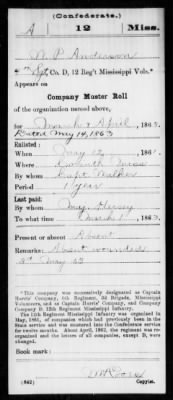 (Confederate.)
A 12 Miss.
W P Anderson
4" Sgt, Co. D, 12 Reg't Mississippi Vols.*
Appears on
Company Muster Roll
of the organization named above,
for March & April, 1863.
Dated May 14, 1863
Enlisted:
When May 12, 1861.
Where Corinth Miss
By whom Capt Walker
Period 1 year
Last paid:
By whom Maj. Hersey
To what time March 1, 1863.
Present or absent Absent
Remarks: Absent wounded
3d May 63
*This company was successively designated as Captain
Harris' Company, 5th Regiment, 3d Brigade, Mississippi
Volunteers, and as Captain Harris' Company, and Company
Company D 12th Regiment Mississippi Infantry.
The 12th Regiment Mississippi Infantry was organized in
May, 1861, of companies which had previously been in the
State service and was mustered into the Confederate service
for twelve months. About April, 1862, the regiment was re-
organized and the letters of companies, except B, D, were
changed.
Book mark:
(642) Copyist.